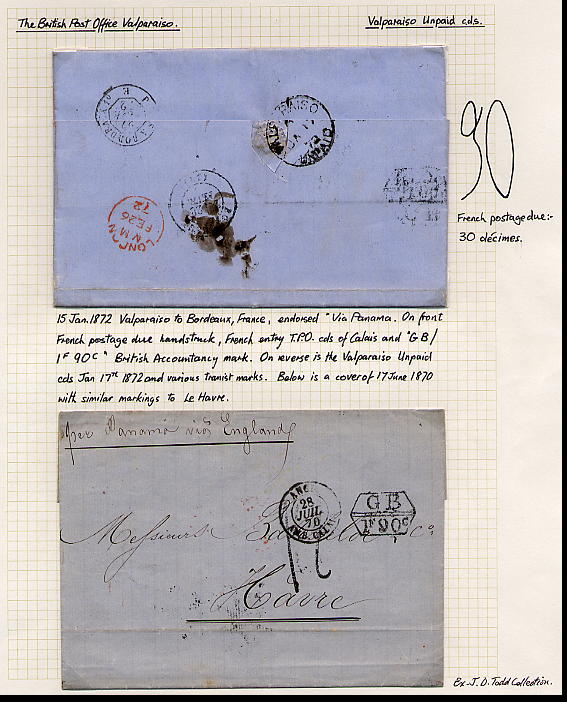 The British Post Office Valparaiso.
Valparaiso Unpaid c.d.s.
VALPARAISO
UNPAID
LONDON
FE 26
72
30
French postage due:-
30 décimes.
15 Jan. 1872 Valparaiso to Bordeaux, France, endorsed "Via Panama. On front
French postage due handstruck, French entry T.P.O. cds of Calais and "GB/
1F 90c" British Accountancy mark. On reverse is the Valparaiso Unpaid
cds Jan 17th 1872 and various tranist marks. Below is a cover of 17 June 1870
with similar markings to Le Havre.
per Panama via England
ANGL.
28
JUIL
70
AMB. CALAIS
GB
1F 90c
Messieurs
& Co
Havre
Ex-J.D. Todd Collection.